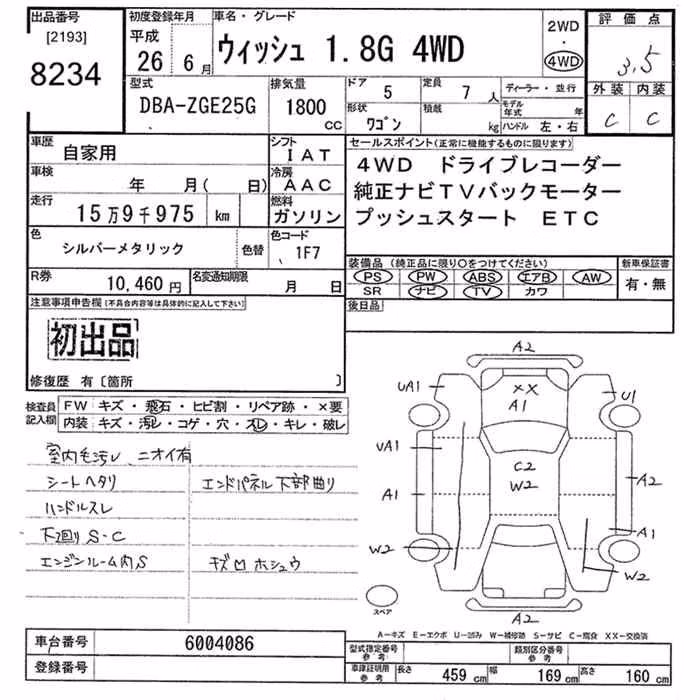 出品番号
[2193]
8234
初度登録年月
平成
26年 6月
車名・グレード
ウィッシュ 1.8G 4WD
2WD
・
4WD
評価点
3.5
外装 内装
C C
型式
DBA-ZGE25G
排気量
1800
CC
ドア 5
定員 7人
ディーラー・並行
形状
ワゴン
積載
kg
モデル年式 年
ハンドル 左・右
車歴
自家用
シフト
IAT
車検
年 月( 日)
冷房
AAC
走行
15万9千975 km
燃料
ガソリン
色
シルバーメタリック
色替
色コード
1F7
R券
10,460円
名変通知期限
月 日
セールスポイント(正常に機能するものに限ります)
4WD ドライブレコーダー
純正ナビTVバックモーター
プッシュスタート ETC
装備品(純正品に限り○をつけてください)
PS PW ABS エアB AW
SR ナビ TV カワ
新車保証書
有・無
後日品
注意事項申告欄(不具合内容等は具体的に記入して下さい)
初出品
修復歴 有〔箇所 〕
検査員
記入欄
FW キズ・飛石・ヒビ割・リペア跡・×要
内装 キズ・汚レ・コゲ・穴・スレ・キレ・破レ
室内毛汚レ、ニオイ有
シートヘタリ
エンドパネル下部曲り
ハンドルスレ
下回りS-C
エンジンルーム内S
キズ凹ホシュウ
A2
UA1
XX
A1
U1
UA1
C2
W2
A1
A2
A1
W2
W2
A2
スペア
A-キズ E-エクボ U-凹み W-補修跡 S-サビ C-腐食 XX-交換済
車台番号
6004086
登録番号
型式指定番号
参考
類別区分番号
参考
車庫証明用
参考
長さ 459 cm
幅 169 cm
高さ 160 cm